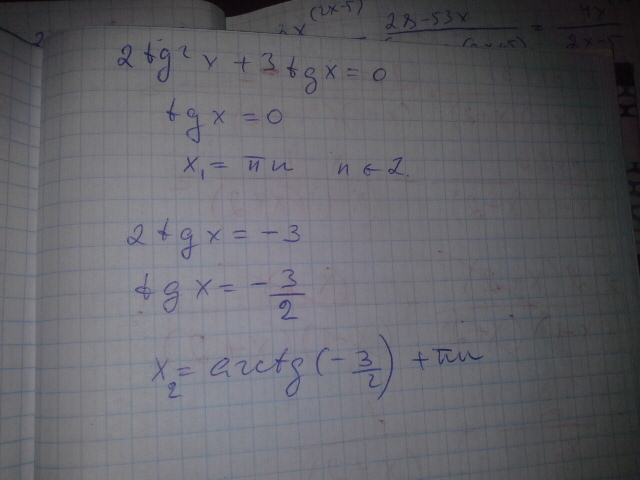 2tg²x + 3tgx = 0
tgx = 0
x₁ = πn n ∈ Z.
2tgx = -3
tgx = -3/2
x₂ = arctg(-3/2) + πn